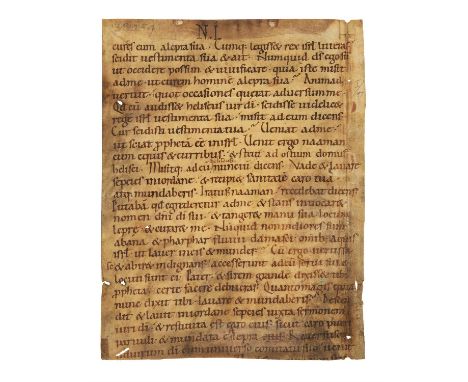 N.I.
cures eum a lepra sua. Cumq; legisset rex isrl litteras
scidit vestimenta sua & ait. Numquid ds ego sū
ut occidere possim & vivificare. quia iste misit
ad me ut curem hominē a lepra sua. Animad
vertite quot occasiones querat adversum me.
Qđ cū audisset heliseus vir di. scidisse videlicet
regē isrl vestimenta sua. misit ad eum dicens
Cur scidisti vestimenta tua. Veniat ad me.
ut sciat p̄phetā eē in isrl. Venit ergo naaman
cum equis & curribus. & stetit ad ostium domus
helisei. Misitq; ad eum dicens. Vade & lavare
sepcies in iordane & recipiet sanitatē caro tua
atq; mundaberis. Iratus naaman recedebat dicens
Putabā qđ egrederetur ad me & stans invocaret
nomen dni di sui & tangeret manu sua locum
lepre & curaret me. Nūquid non meliores sunt
abana & pharphar fluvii damasci omnib; aquis
isrl ut laver in eis & munder. Cū ergo vertisset
se & abiret indignans. accesserunt ad eū servi sui &
locuti sunt ei. Pater & si rem grandē dixisset tibi
p̄pheta certe facere debueras. Quanto magis quia
nunc dixit tibi lavare & mundaberis. Descen
dit & lavit in iordane sepcies iuxta sermonem
viri di & restituta est caro eius sicut caro pueri
parvuli & mundata est Reversusq;
ad virum di cum universo comitatu suo venit